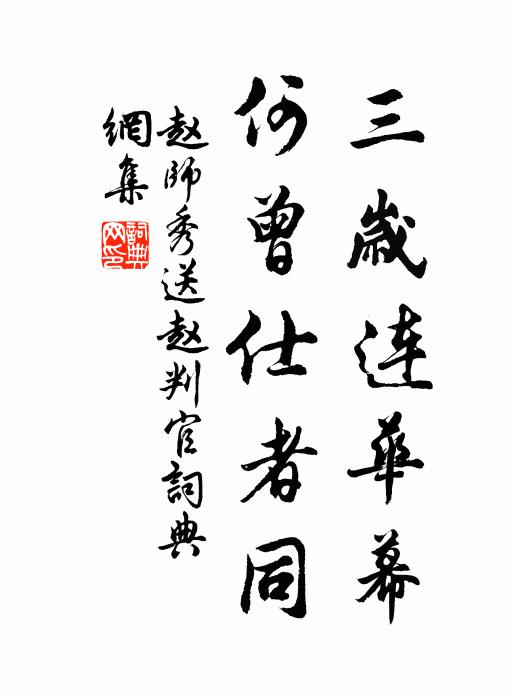 三歲连華幕
何曾仕者同
赵師秀送赵判官詞典
網集
詞典
网印